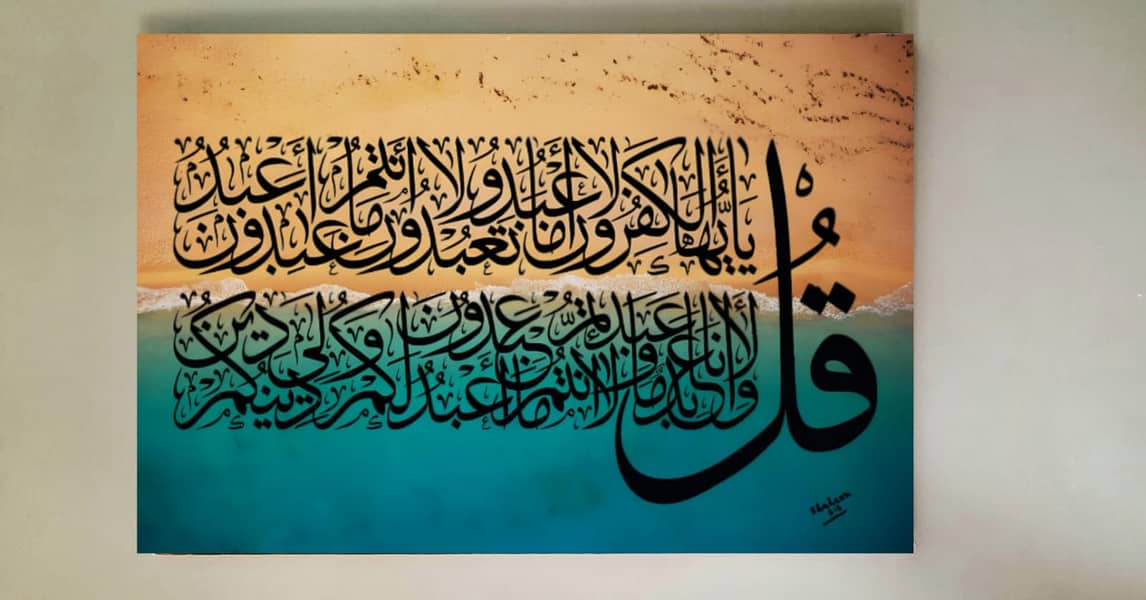 قُلْ
يَا أَيُّهَا الْكَٰفِرُونَ لَا أَعْبُدُ مَا تَعْبُدُونَ وَلَا أَنتُمْ عَٰبِدُونَ مَا أَعْبُدُ
وَلَا أَنَا عَابِدٌ مَّا عَبَدتُّمْ وَلَا أَنتُمْ عَٰبِدُونَ مَا أَعْبُدُ لَكُمْ دِينُكُمْ وَلِيَ دِينِ